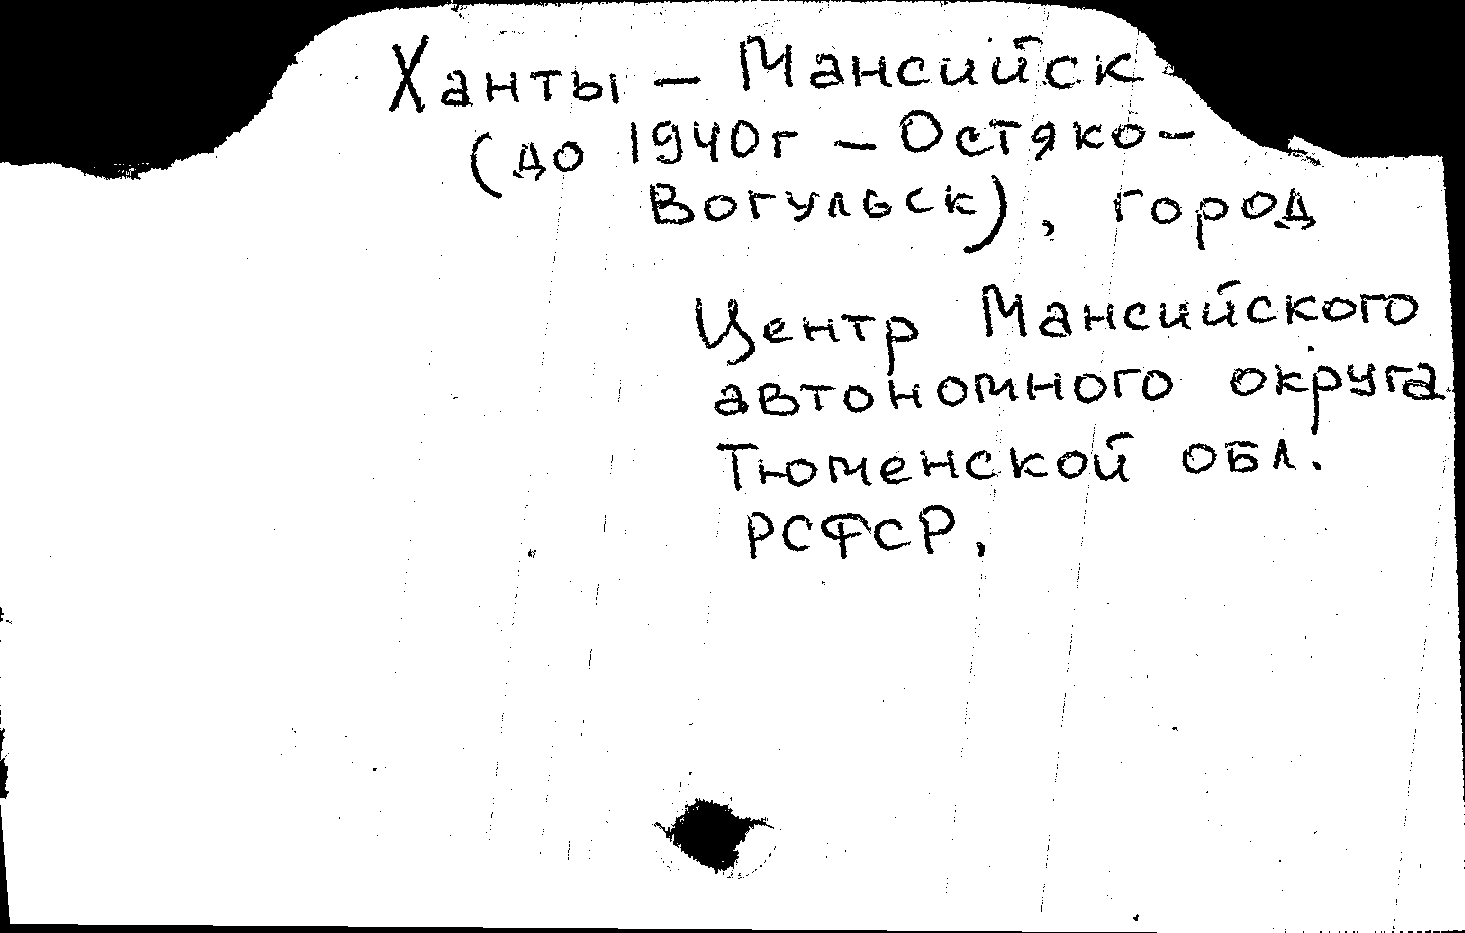 Ханты – Мансийск
(до 1940г – Остяко-
Вогульск), город
Центр Мансийского
автономного округа
Тюменской обл.
РСФСР.